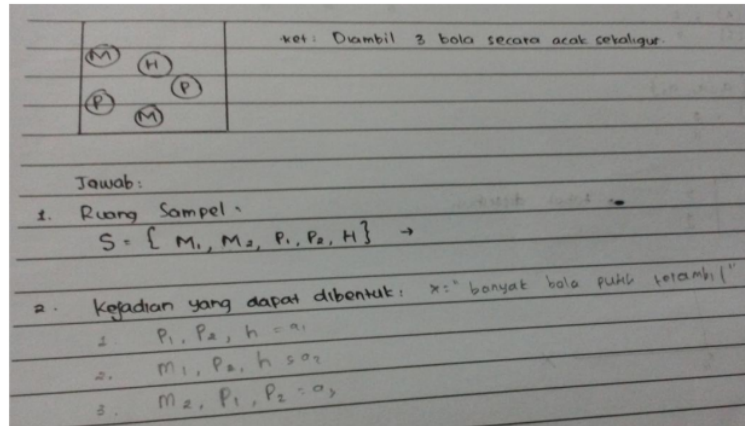 ket: Diambil 3 bola secara acak sekaligus.
M
H
P
P
M
Jawab:
1. Ruang Sampel.
S = { M₁, M₂, P₁, P₂, H } →
2. Kejadian yang dapat dibentuk: x = "banyak bola putih terambil"
1 P₁, P₂, h = a₁
2. m₁, P₂, h = a₂
3. m₂, P₁, P₂ = a₃